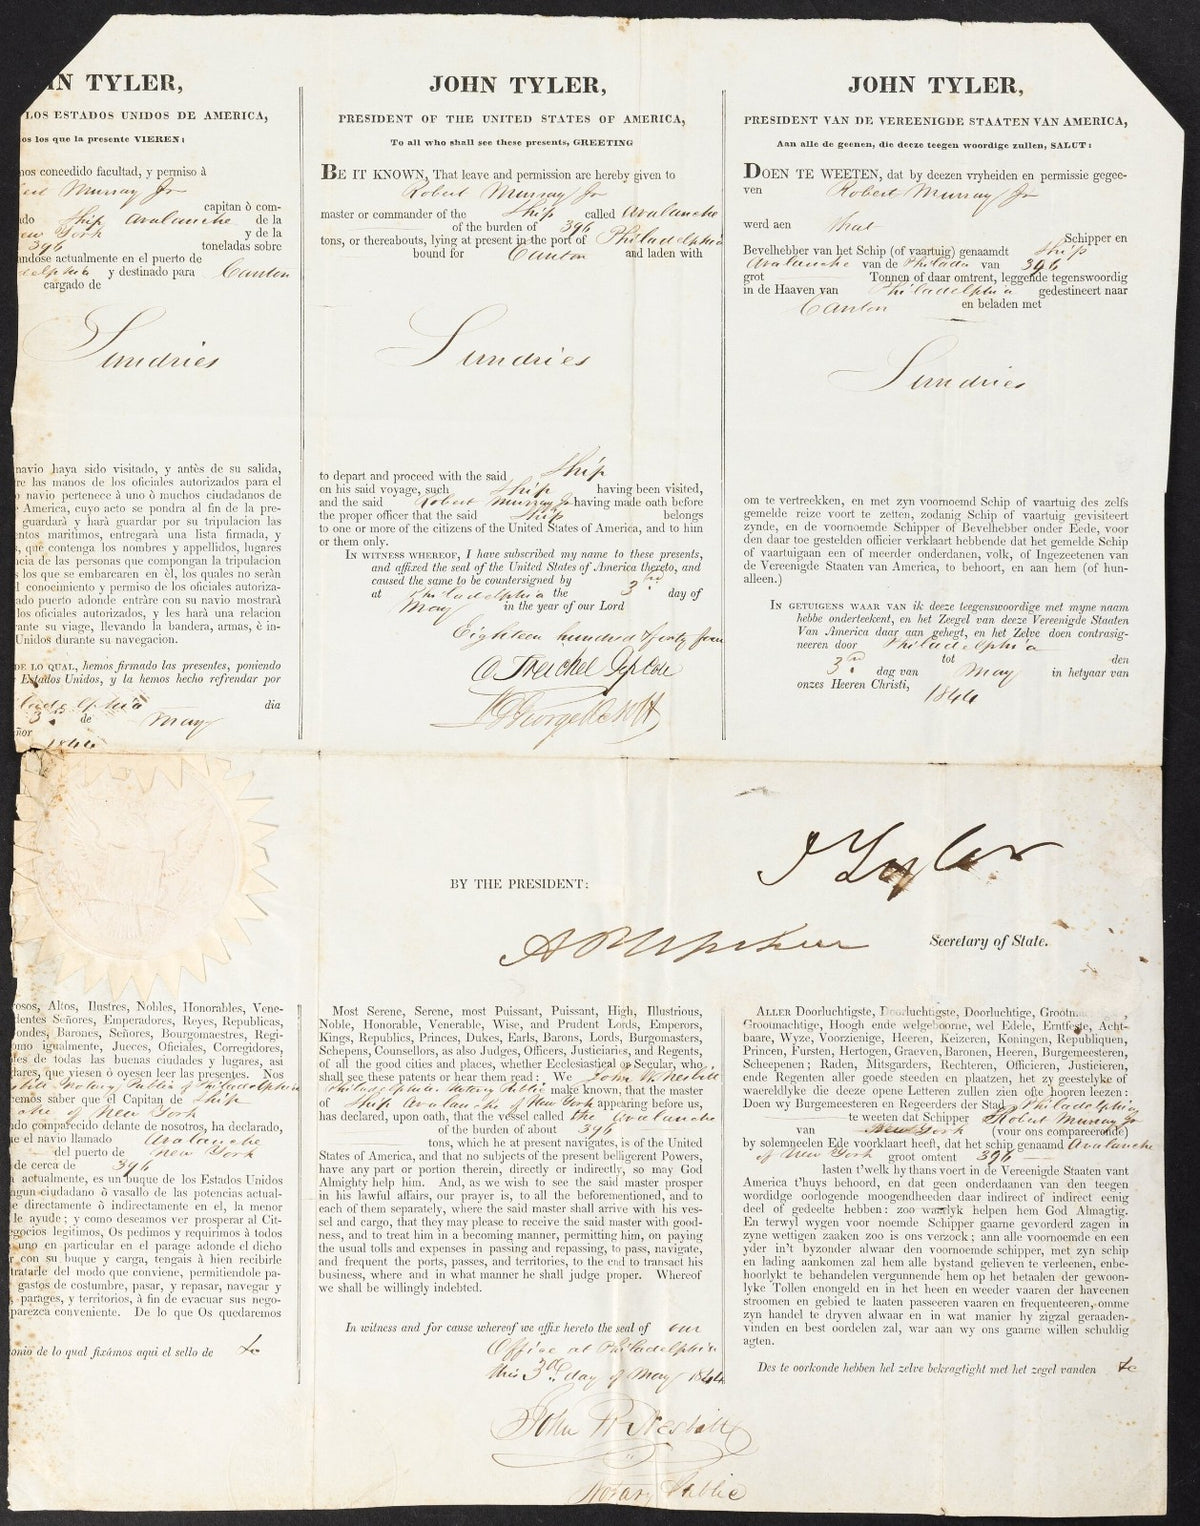 N TYLER,
LOS ESTADOS UNIDOS DE AMERICA,
os los que la presente VIEREN:
mos concedido facultad, y permiso à
Murray Jr
capitan ò com-
ado Ship Avalanche de la
ew York y de la
396 toneladas sobre
andose actualmente en el puerto de
delphia y destinado para Canton
cargado de
Sundries
navio haya sido visitado, y antès de su salida,
re las manos de los oficiales autorizados para el
navio pertenece à uno ò muchos ciudadanos de
America, cuyo acto se pondra al fin de la pre-
guardarà y harà guardar por su tripulacion las
entos maritimos, entregarà una lista firmada, y
s, què contenga los nombres y appellidos, lugares
cia de las personas que compongan la tripulacion
s los que se embarcaren en èl, los quales no seràn
l conocimiento y permiso de los oficiales autoriza-
ado puerto adonde entràre con su navio mostrarà
los oficiales autorizados, y les harà una relacion
rante su viage, llevando la bandera, armas, è in-
Unidos durante su navegacion.
DE LO QUAL, hemos firmado las presentes, poniendo
Estados Unidos, y la hemos hecho refrendar por
ladelphia dia
3rd de May
ñor
1844
JOHN TYLER,
PRESIDENT OF THE UNITED STATES OF AMERICA,
To all who shall see these presents, GREETING
BE IT KNOWN, That leave and permission are hereby given to
Robert Murray Jr
master or commander of the Ship called Avalanche
of the burden of 396
tons, or thereabouts, lying at present in the port of Philadelphia
bound for Canton and laden with
Sundries
to depart and proceed with the said Ship
on his said voyage, such Ship having been visited,
and the said Robert Murray Jr having made oath before
the proper officer that the said Ship belongs
to one or more of the citizens of the United States of America, and to him
or them only.
IN WITNESS WHEREOF, I have subscribed my name to these presents,
and affixed the seal of the United States of America thereto, and
caused the same to be countersigned by
at Philadelphia the 3rd day of
May in the year of our Lord
Eighteen hundred & forty four
JOHN TYLER,
PRESIDENT VAN DE VEREENIGDE STAATEN VAN AMERICA,
Aan alle de geenen, die deeze teegen woordige zullen, SALUT:
DOEN TE WEETEN, dat by deezen vryheiden en permissie gegee-
ven Robert Murray Jr
werd aen that
Schipper en
Bevelhebber van het Schip (of vaartuig) genaamdt Ship
Avalanche van de Philada van 396
grot Tonnen of daar omtrent, leggende tegenswoordig
in de Haaven van Philadelphia gedestineert naar
Canton en beladen met
Sundries
om te vertreekken, en met zyn voornoemd Schip of vaartuig des zelfs
gemelde reize voort te zetten, zodanig Schip of vaartuig gevisiteert
zynde, en de voornoemde Schipper of Bevelhebber onder Eede, voor
den daar toe gestelden officier verklaart hebbende dat het gemelde Schip
of vaartuigaan een of meerder onderdanen, volk, of Ingezeetenen van
de Vereenigde Staaten van America, to behoort, en aan hem (of hun-
alleen.)
IN GETUIGENS WAAR VAN ik deeze teegenswoordige met myne naam
hebbe onderteekent, en het Zeegel van deeze Vereenigde Staaten
Van America daar aan gehegt, en het Zelve doen contrasig-
neeren door Philadelphia
tot den
3rd dag van May in hetyaar van
onzes Heeren Christi, 1844
J Tyler
BY THE PRESIDENT:
A P Upshur Secretary of State.
rosos, Altos, Ilustres, Nobles, Honorables, Vene-
dentes Señores, Emperadores, Reyes, Republicas,
ondes, Barones, Señores, Bourgomaestres, Regi-
omo igualmente, Jueces, Oficiales, Corregidores,
les de todas las buenas ciudades y lugares, asi
lares, que viesen ò oyesen leer las presentes. Nos
Notary Public of Philadelphia
emos saber que el Capitan de Ship
of New York
do comparecido delante de nosotros, ha declarado,
ue el navio llamado Avalanche
del puerto de New York
de cerca de 396
a actualmente, es un buque de los Estados Unidos
ngun ciudadano ò vasallo de las potencias actual-
e directamente ò indirectamente en el, la menor
le ayude; y como deseamos ver prosperar al Cit-
egocios legitimos, Os pedimos y requirimos à todos
uno en particular en el parage adonde el dicho
r con su buque y carga, tengais à bien recibirle
tratarle del modo que conviene, permitiendole pa-
gastos de costumbre, pasar, y repasar, navegar y
parages, y territorios, à fin de evacuar sus nego-
parezca conveniente. De lo que Os quedaremos
onio de lo qual fixâmos aqui el sello de &c
Most Serene, Serene, most Puissant, Puissant, High, Illustrious,
Noble, Honorable, Venerable, Wise, and Prudent Lords, Emperors,
Kings, Republics, Princes, Dukes, Earls, Barons, Lords, Burgomasters,
Schepens, Counsellors, as also Judges, Officers, Justiciaries, and Regents,
of all the good cities and places, whether Ecclesiastical or Secular, who
shall see these patents or hear them read: We John W. Nesbitt
Philadelphia Notary Public make known, that the master
of Ship Avalanche of New York appearing before us,
has declared, upon oath, that the vessel called the Avalanche
of the burden of about 396
tons, which he at present navigates, is of the United
States of America, and that no subjects of the present belligerent Powers,
have any part or portion therein, directly or indirectly, so may God
Almighty help him. And, as we wish to see the said master prosper
in his lawful affairs, our prayer is, to all the beforementioned, and to
each of them separately, where the said master shall arrive with his ves-
sel and cargo, that they may please to receive the said master with good-
ness, and to treat him in a becoming manner, permitting him, on paying
the usual tolls and expenses in passing and repassing, to pass, navigate,
and frequent the ports, passes, and territories, to the end to transact his
business, where and in what manner he shall judge proper. Whereof
we shall be willingly indebted.
In witness and for cause whereof we affix hereto the seal of our
Office at Philadelphia
this 3rd day of May 1844
John W. Nesbitt
Notary Public
ALLER Doorluchtigste, Doorluchtigste, Doorluchtige,
Grootmachtige, Hoogh ende welgeboorne, wel Edele, Erntfeste, Acht-
baare, Wyze, Voorzienige, Heeren, Keizeren, Koningen, Republiquen,
Princen, Fursten, Hertogen, Graeven, Baronen, Heeren, Burgemeesteren,
Scheepenen; Raden, Mitsgarders, Rechteren, Officieren, Justicieren,
ende Regenten aller goede steeden en plaatzen, het zy geestelyke of
waereldlyke die deeze opene Letteren zullen zien ofte hooren leezen:
Doen wy Burgemeesteren en Regeerders der Stad Philadelphia
te weeten dat Schipper Robert Murray Jr
van New York (voor ons compareerende)
by solemneelen Ede voorklaart heeft, dat het schip genaamd Avalanche
of New York groot omtent 396
lasten t'welk hy thans voert in de Vereenigde Staaten vant
America t'huys behoord, en dat geen onderdaanen van den teegen
wordidge oorlogende moogendheeden daar indirect of indirect eenig
deel of gedeelte hebben: zoo waarlyk helpen hem God Almagtig.
En terwyl wygen voor noemde Schipper gaarne gevorderd zagen in
zyne wettigen zaaken zoo is ons verzock; ann alle voornoemde en een
yder in't byzonder alwaar den voornoemde schipper, met zyn schip
en lading aankomen zal hem alle bystand gelieven te verleenen, enbe-
hoorlykt te behandelen vergunnende hem op het betaalen der gewoon-
lyke Tollen enongeld en in het heen en weeder vaaren der haveenen
stroomen en gebied te laaten passeeren vaaren en frequenteeren, omme
zyn handel te dryven alwaar en in wat manier hy zigzal geraaden-
vinden en best oordelen zal, war aan wy ons gaarne willen schuldig
agten.
Des te oorkonde hebben hel zelve bekragtight met het zegel vanden &c